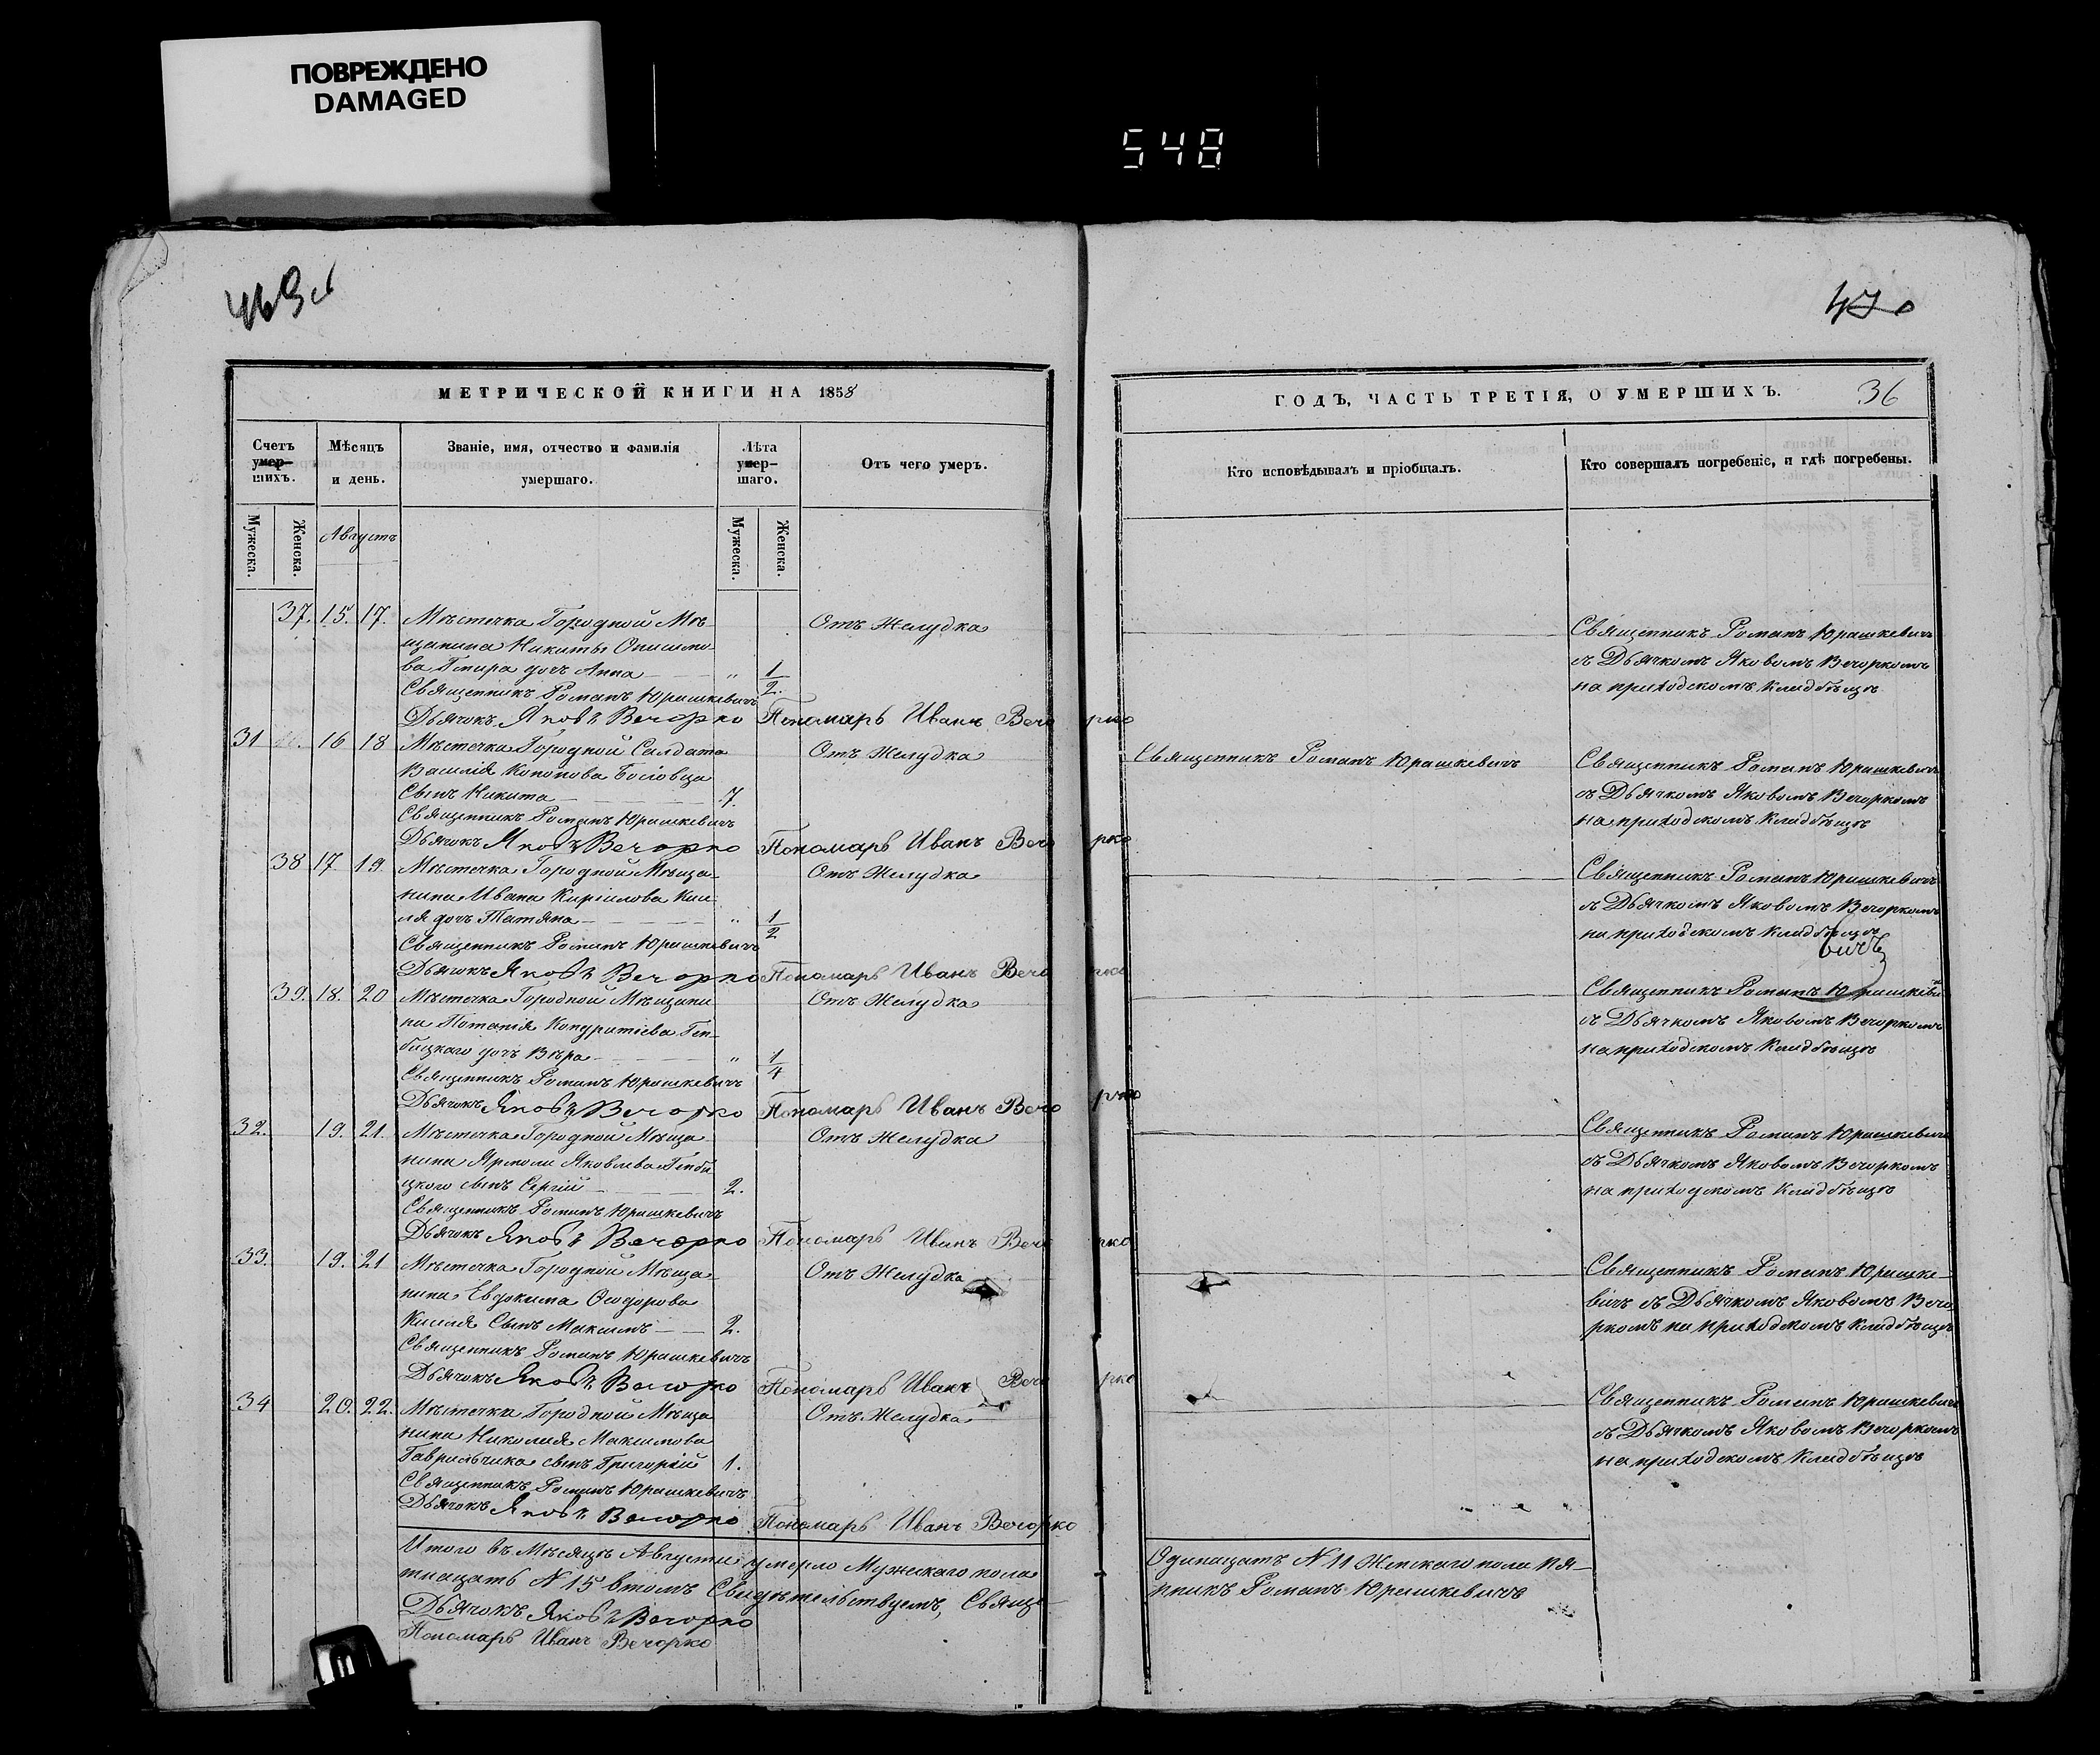 ПОВРЕЖДЕНО
DAMAGED
548
469
470
МЕТРИЧЕСКОЙ КНИГИ НА 1858
ГОДЪ, ЧАСТЬ ТРЕТІЯ, О УМЕРШИХЪ.
36
Счетъ умер-шихъ.
Мѣсяцъ и день.
Званіе, имя, отчество и фамилія умершаго.
Лѣта умер-шаго.
Отъ чего умеръ.
Кто исповѣдывалъ и пріобщалъ.
Кто совершалъ погребеніе, и гдѣ погребены.
Мужеска.
Женска.
Августъ
Мужеска.
Женска.
37. 15. 17. Мѣстечка Городной Мѣ- Отъ Желудка Священникъ Романъ Юрашкевичъ
щанина Никиты съ Дьячкомъ Яковомъ Вечоркомъ
дочь Анна " 1/2. на приходскомъ кладбѣще
Священникъ Романъ Юрашкевичъ
Дьячокъ Яковъ Вечорко Пономарь Иванъ Вечорко
31 16 18 Мѣстечка Городной Салдата Отъ Желудка Священникъ Романъ Юрашкевичъ Священникъ Романъ Юрашкевичъ
Василія Конопова съ Дьячкомъ Яковомъ Вечоркомъ
Сынъ Никита 7. на приходскомъ кладбѣще
Священникъ Романъ Юрашкевичъ
Дьячокъ Яковъ Вечорко Пономарь Иванъ Вечорко
38 17. 19. Мѣстечка Городной Мѣща- Отъ Желудка Священникъ Романъ Юрашкевичъ
нина Ивана Кирилова Ки- съ Дьячкомъ Яковомъ Вечоркомъ
ля дочь Татяна " 1/2 на приходскомъ кладбѣще
Священникъ Романъ Юрашкевичъ
вичъ
Дьячокъ Яковъ Вечорко Пономарь Иванъ Вечорко
39. 18. 20 Мѣстечка Городной Мѣщани Отъ Желудка Священникъ Романъ Юрашкеви
на Потапія Кондратіева Геп- съ Дьячкомъ Яковомъ Вечоркомъ
бицкаго дочь Вѣра " 1/4 на приходскомъ кладбѣще
Священникъ Романъ Юрашкевичъ
Дьячокъ Яковъ Вечорко Пономарь Иванъ Вечорко
32. 19. 21. Мѣстечка Городной Мѣща Отъ Желудка Священникъ Романъ Юрашкевичъ
нина Ярмоли Яковлева Гепби съ Дьячкомъ Яковомъ Вечоркомъ
цкого сынъ Сергій 2. на приходскомъ кладбѣще
Священникъ Романъ Юрашкевичъ
Дьячокъ Яковъ Вечорко Пономарь Иванъ Вечорко
33. 19. 21 Мѣстечка Городной Мѣща Отъ Желудка Священникъ Романъ Юрашке-
нина Евдокима Ѳеодорова вичъ съ Дьячкомъ Яковомъ Вечо
Киселя Сынъ Максимъ 2. ркомъ на приходскомъ кладбѣще
Священникъ Романъ Юрашкевичъ
Дьячокъ Яковъ Вечорко Пономарь Иванъ Вечорко
34 20. 22. Мѣстечка Городной Мѣща Отъ Желудка Священникъ Романъ Юрашкевичъ
нина Николая Максимова съ Дьячкомъ Яковомъ Вечоркомъ
Гаврильчика сынъ Григорій 1. на приходскомъ кладбѣще
Священникъ Романъ Юрашкевичъ
Дьячокъ Яковъ Вечорко Пономарь Иванъ Вечорко
Итого въ Мѣсяцѣ Августѣ умерло Мужескаго пола Одинацать № 11 Женскаго пола пя-
тнацать № 15 втомъ Свидѣтельствуемъ, Свяще- нникъ Романъ Юрашкевичъ
Дьячокъ Яковъ Вечорко
Пономарь Иванъ Вечорко